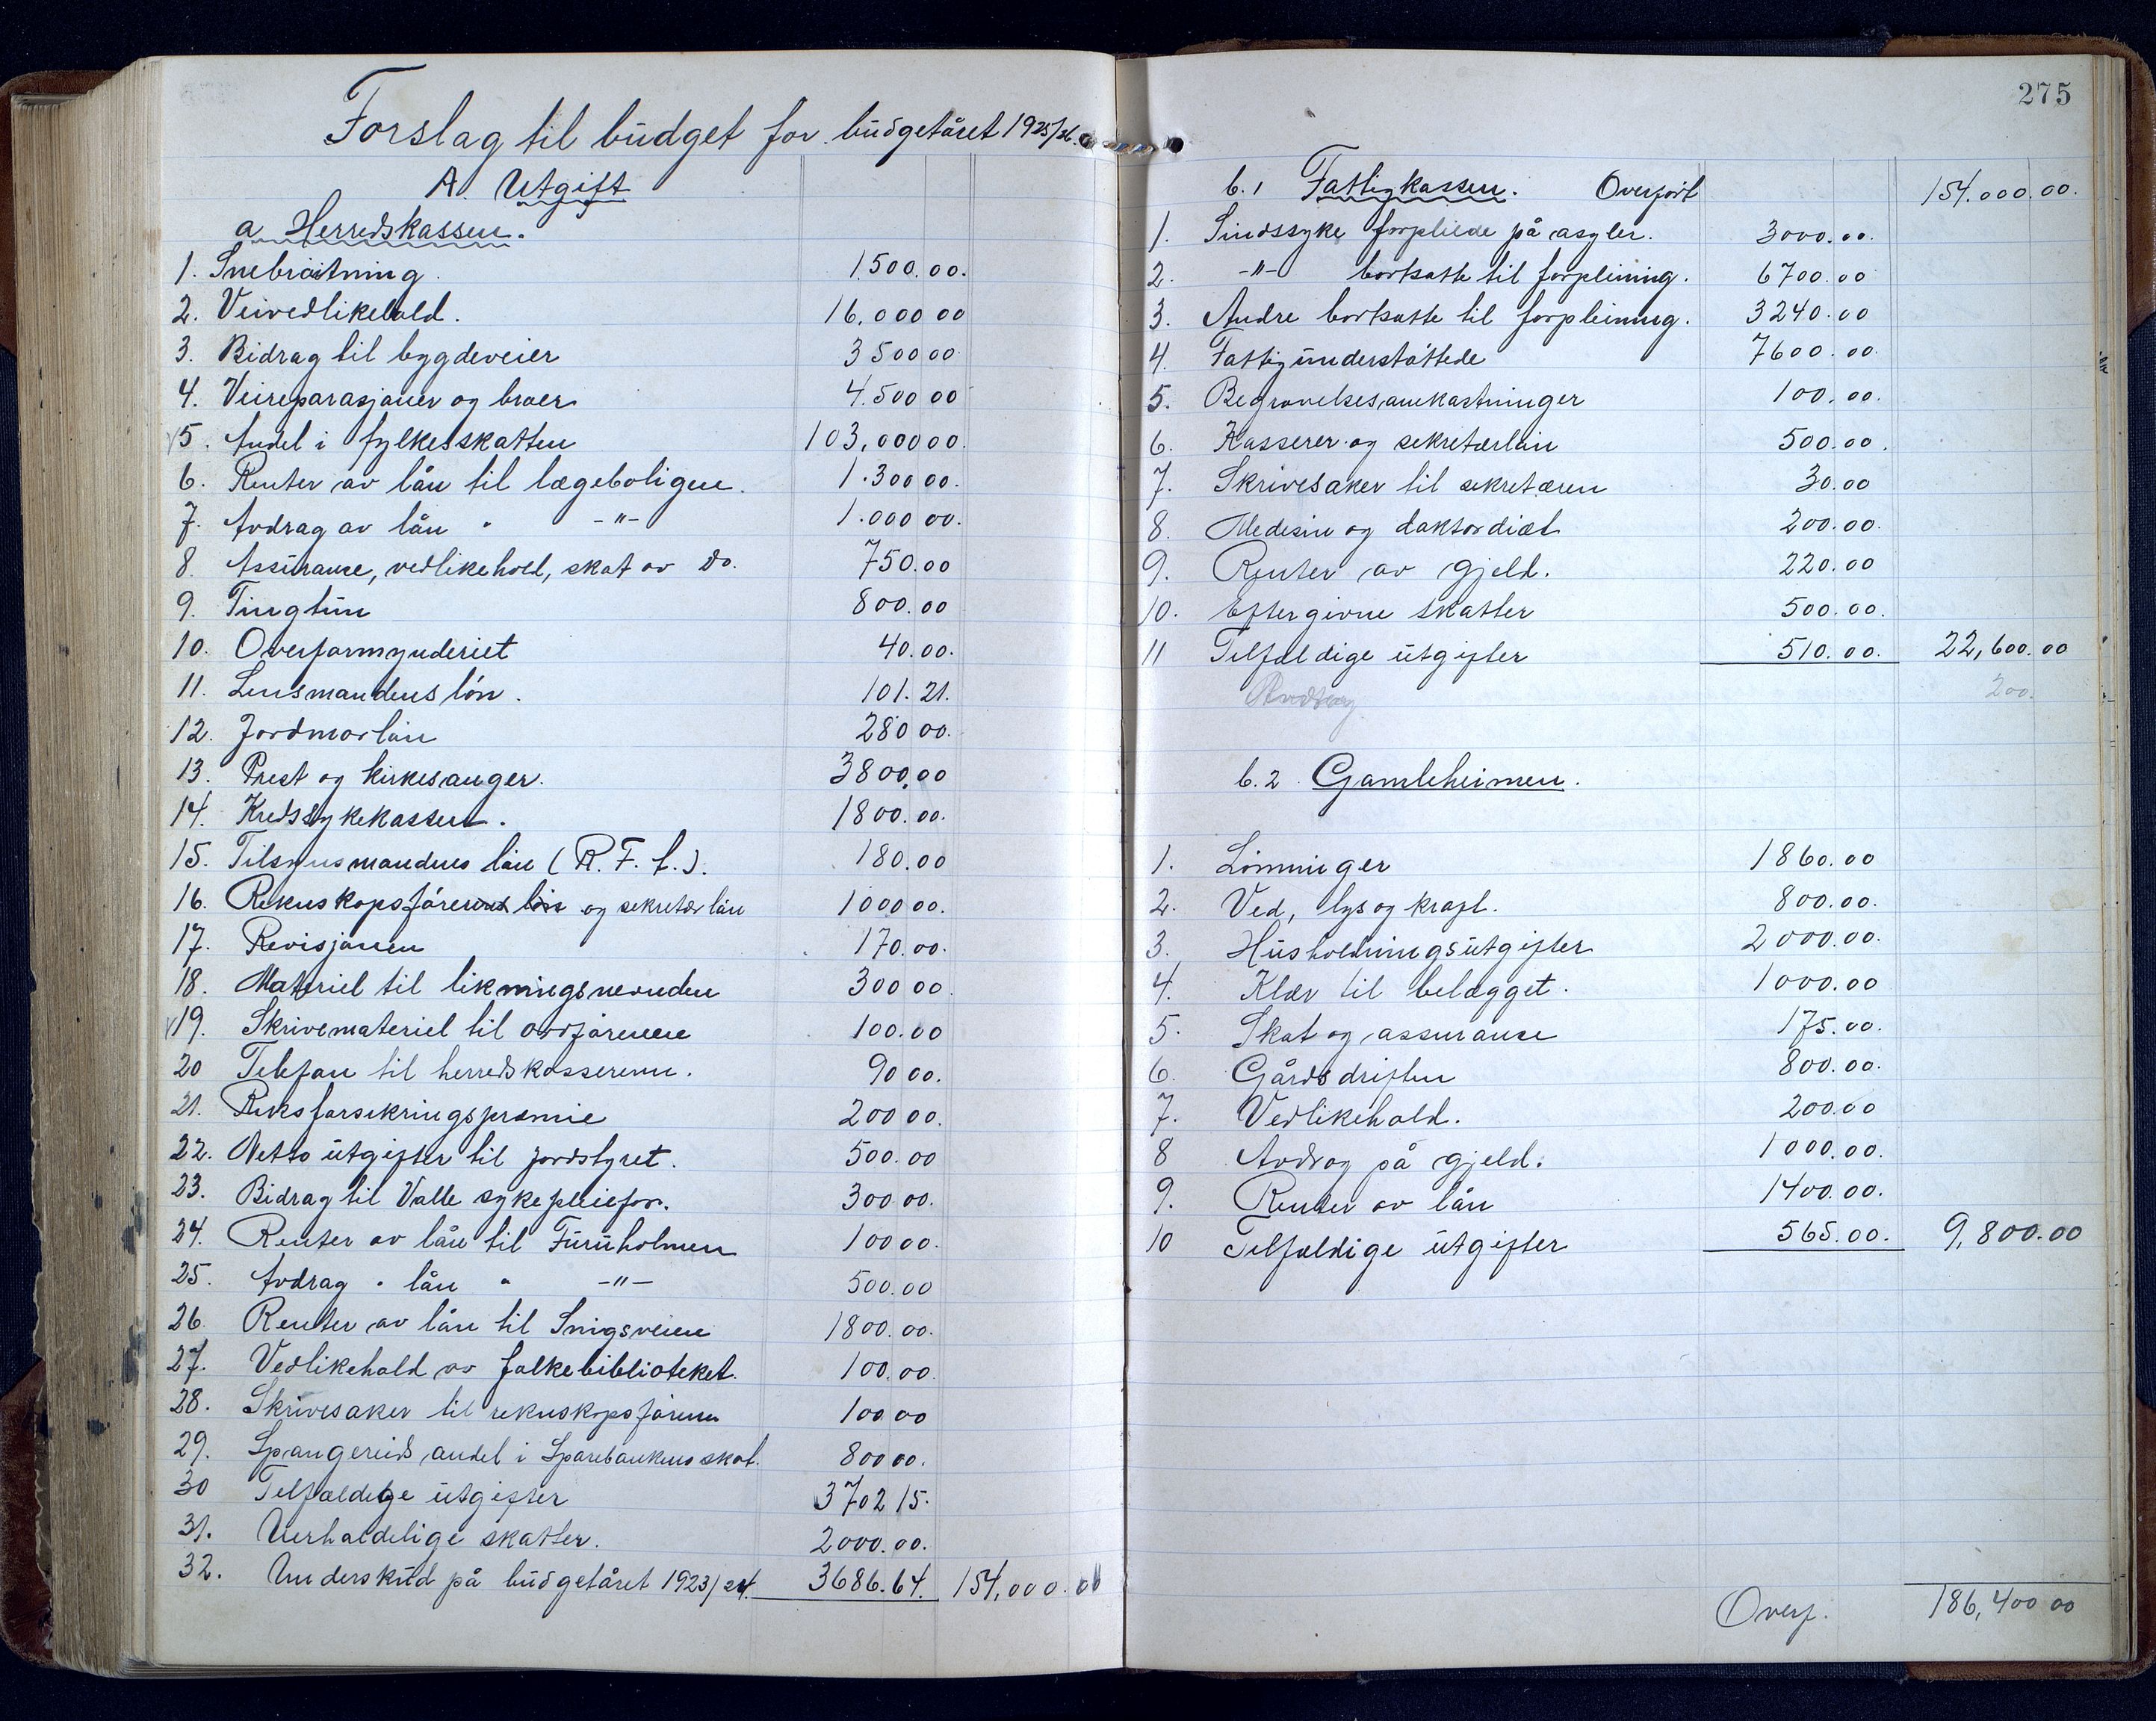 Forslag til budget for budgetåret 1925/26.
A. Utgift
a. Herredskassen.
1. Snebröitning 1.500.00.
2. Veivedlikehold. 16.000 00
3. Bidrag til bygdeveier 3500 00
4. Veireparasjoner og broer 4.500 00
5. Andel i fylkesskatten 103,000 00.
6. Renter av lån til lægeboligen. 1.300 00.
7. Avdrag av lån " -"- 1.000 00.
8. Assurance, vedlikehold, skat av do. 750.00
9. Tingtun 800.00
10. Overformynderiet 40.00.
11. Lensmandens lön. 101.21.
12. Jordmorlön 280 00.
13. Prest og kirkesanger. 3800,00
14. Kredssykekassen. 1800.00.
15. Tilsynsmandens lön (R. F. f.). 180.00
16. Rekneskapsförerens lön og sekretær lön 1000 00.
17. Revisjonen 170.00.
18. Materiel til likningsnevnden 300 00.
19. Skrivemateriel til ordföreren 100.00
20 Telefon til herredskassereren. 90 00.
21. Riksforsikringspræmie 200 00.
22. Netto utgifter til jordstyret. 500.00
23. Bidrag til Valle sykepleiefor. 300 00.
24. Renter av lån til Furuholmen 100 00.
25. Avdrag " lån " -"- 500.00
26. Renter av lån til Snigsveien 1800.00.
27. Vedlikehold av folkebiblioteket. 100.00
28. Skrivesaker til rekneskapsföreren 100 00
29. Spangereids andel i Sparebankens skat. 800 00.
30 Tilfældige utgifter 3702 15.
31. Uerholdelige skatter. 2000.00.
32. Underskud på budgetåret 1923/24. 3686.64. 154,000.00
275
b.1 Fattigkassen. Overfört 154.000.00.
1. Sindssyke forpleiede på asyler. 3000.00.
2. -"- bortsatte til forpleining. 6700.00
3. Andre bortsatte til forpleining. 3240.00
4. Fattigunderstöttede 7600.00.
5. Begravelsesomkostninger 100.00.
6. Kasserer og sekretærlön 500.00.
7. Skrivesaker til sekretæren 30.00
8. Medesin og doktordiæt 200.00.
9. Renter av gjeld. 220.00
10. Eftergivne skatter 500.00.
11 Tilfældige utgifter 510.00. 22,600.00
Avdrag 200.
b.2 Gamleheimen.
1. Lönninger 1860.00
2. Ved, lys og kraft. 800.00.
3. Husholdningsutgifter 2000.00.
4. Klær til belægget. 1000.00
5. Skat og assurance 175.00.
6. Gårdsdriften 800.00.
7. Vedlikehold. 200.00
8 Avdrag på gjeld. 1000.00.
9. Renter av lån 1400.00.
10 Tilfældige utgifter 565.00. 9,800.00
Overf. 186,400 00